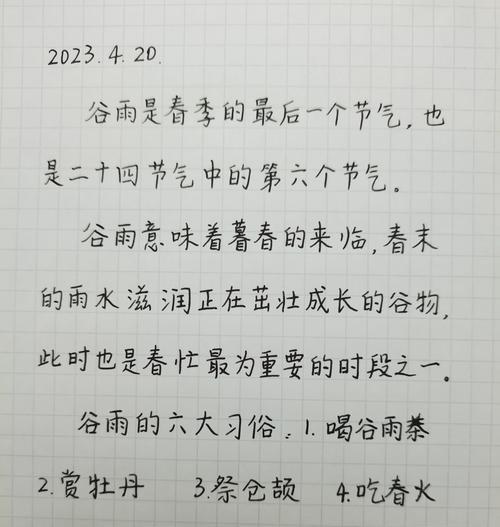 2023.4.20.
谷雨是春季的最后一个节气,也
是二十四节气中的第六个节气。
谷雨意味着暮春的来临,春末
的雨水滋润正在茁壮成长的谷物,
此时也是春忙最为重要的时段之一。
谷雨的六大习俗:1.喝谷雨茶
2.赏牡丹 3.祭仓颉 4.吃春火